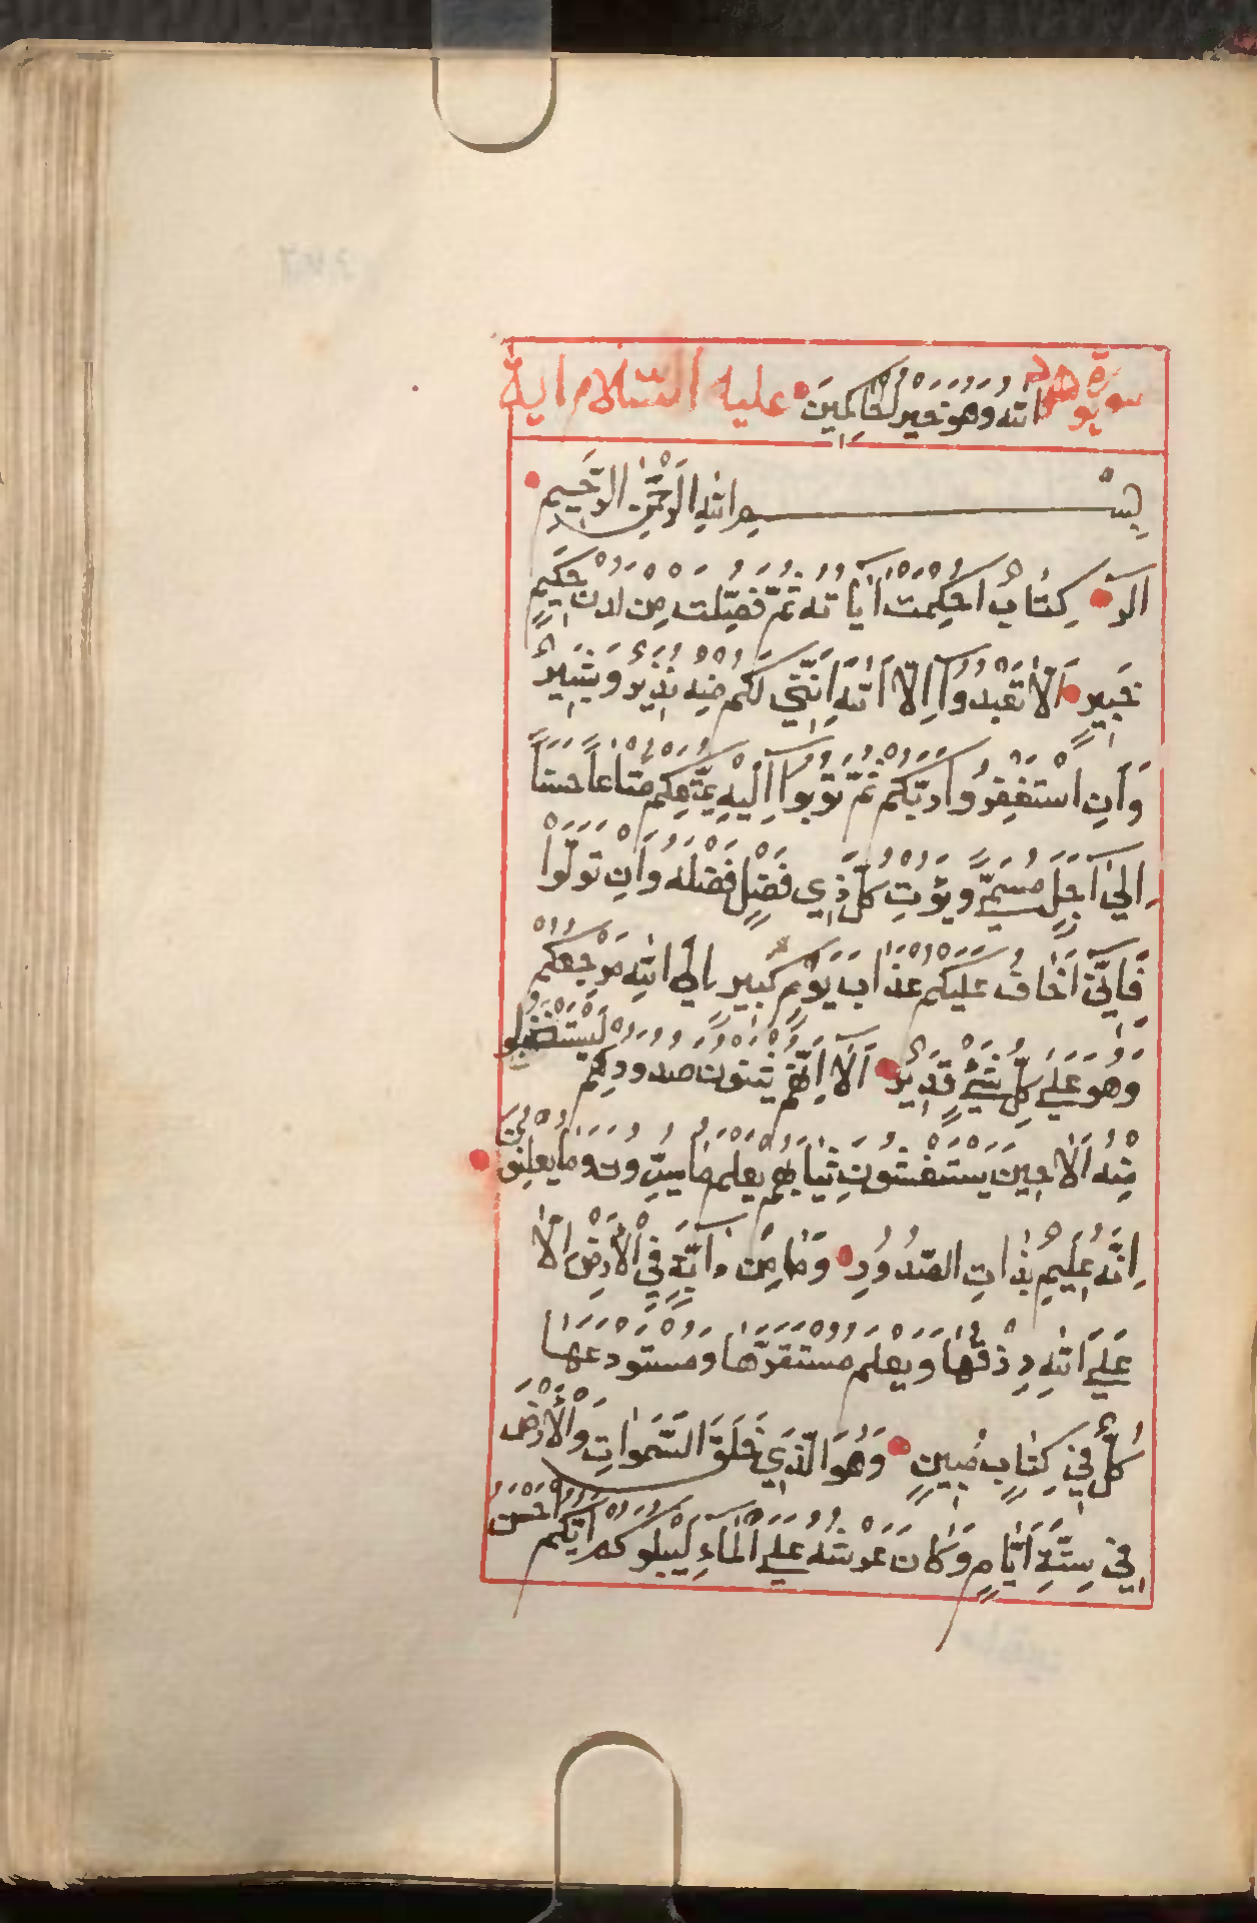 سورة هود الله وهو خير الحاكمين عليه السلام اية
بسم الله الرحمن الرحيم
الر كِتٰابٌ اُحْكِمَتْ اٰيٰاتُهُ ثُمَّ فُصِّلَتْ مِنْ لَدُنْ حَكِيمٍ
خَبِيرٍ اَلّٰا تَعْبُدُوٓا اِلَّا اللّٰهَ اِنَّنِي لَكُمْ مِنْهُ نَذِيرٌ وَبَشِيرٌ
وَاَنِ اسْتَغْفِرُوا رَبَّكُمْ ثُمَّ تُوبُوٓا اِلَيْهِ يُمَتِّعْكُمْ مَتٰاعاً حَسَناً
اِلىٰٓ اَجَلٍ مُسَمًّى وَيُؤْتِ كُلَّ ذِي فَضْلٍ فَضْلَهُ وَاِنْ تَوَلَّوْا
فَاِنِّيٓ اَخٰافُ عَلَيْكُمْ عَذٰابَ يَوْمٍ كَبِيرٍ اِلَى اللّٰهِ مَرْجِعُكُمْ
وَهُوَ عَلىٰ كُلِّ شَيْءٍ قَدِيرٌ اَلٰٓا اِنَّهُمْ يَثْنُونَ صُدُورَكُمْ لِيَسْتَخْفُوا
مِنْهُ اَلٰا حِينَ يَسْتَغْشُونَ ثِيٰابَهُمْ يَعْلَمُ مٰا يُسِرُّونَ وَمٰا يُعْلِنُونَ
اِنَّهُ عَلِيمٌ بِذٰاتِ الصُّدُورِ وَمٰا مِنْ دٰآبَّةٍ فِي الْاَرْضِ اِلَّا
عَلَى اللّٰهِ رِزْقُهٰا وَيَعْلَمُ مُسْتَقَرَّهٰا وَمُسْتَوْدَعَهٰا
كُلٌّ فِي كِتٰابٍ مُبِينٍ وَهُوَ الَّذِي خَلَقَ السَّمٰوٰاتِ وَالْاَرْضَ
فِي سِتَّةِ اَيّٰامٍ وَكٰانَ عَرْشُهُ عَلَى الْمٰآءِ لِيَبْلُوَكُمْ اَيُّكُمْ اَحْسَنُ